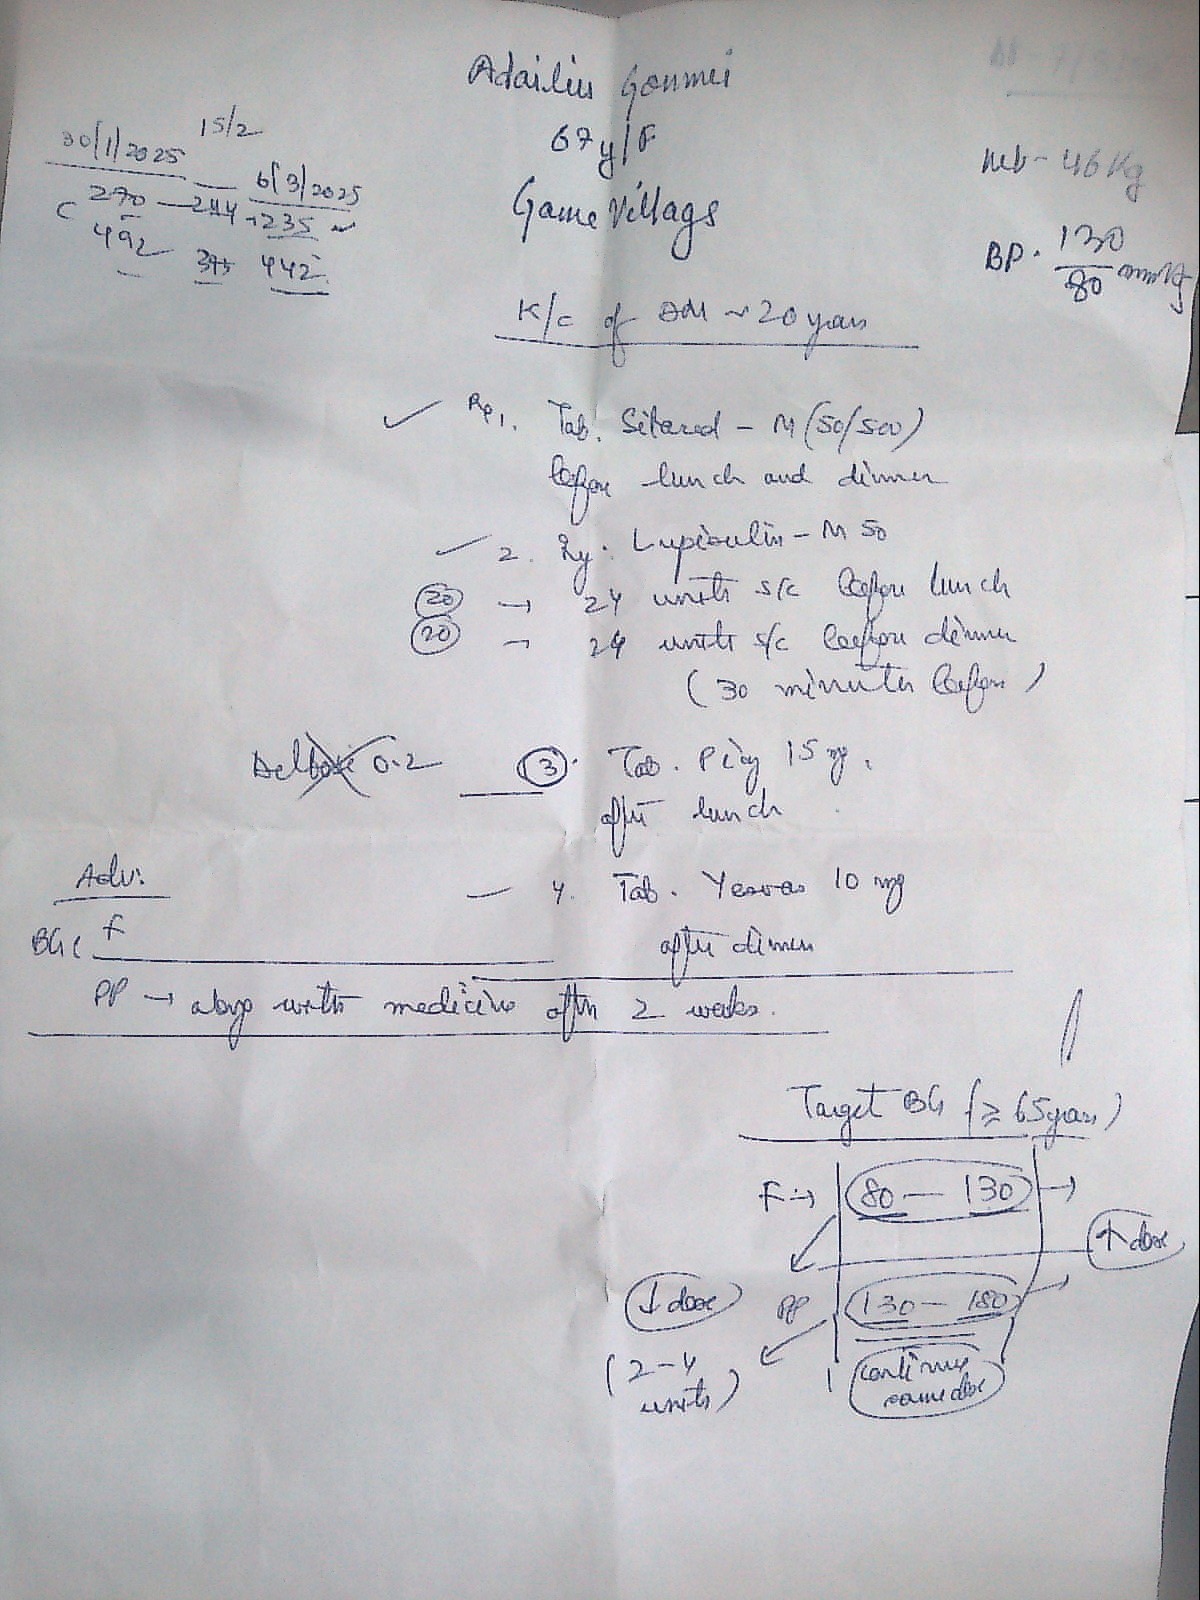 Adailiu Gonmei
67 y/F
Game Village
30/1/2025 15/2 6/3/2025
270 — 244 → 235
492 375 442
Wt - 46 Kg
BP. 130/80 mmHg
K/c of DM ~ 20 years
Rp 1. Tab. Sitared - M (50/500)
before lunch and dinner
2. Inj. Lupisulin - M 50
20 → 24 units s/c before lunch
20 → 24 units s/c before dinner
(30 minutes before)
0.2 3. Tab. Piog 15 mg.
after lunch
4. Tab. 10 mg
after dinner
Adv:
BG F
PP → along with medicine after 2 weeks.
Target BG (≥ 65 years)
F → 80 — 130 →
↑ dose
↓ dose PP 130 — 180
(2-4 units)
continue same dose